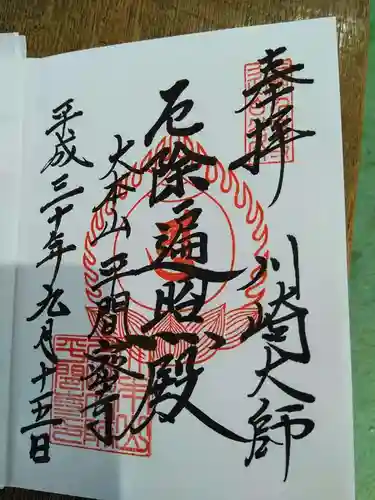 奉拝
川崎大師
厄除遍照殿
大本山平間寺
平成三十年九月十五日